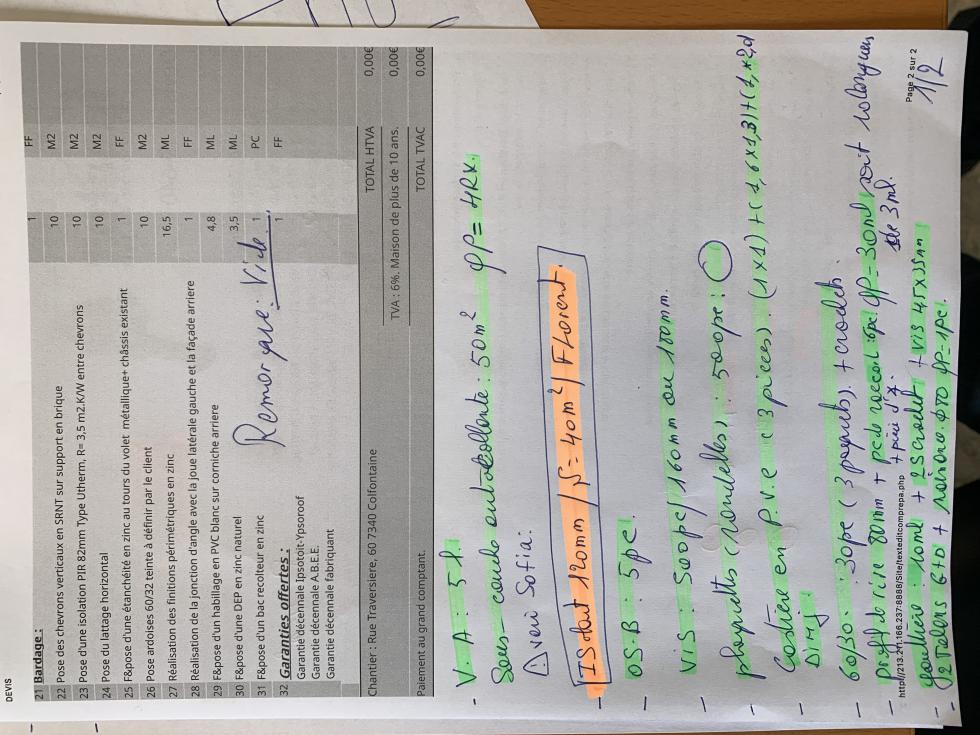 DEVIS
21 Bardage : 1 FF
22 Pose des chevrons verticaux en SRNT sur support en brique 10 M2
23 Pose d'une isolation PIR 82mm Type Utherm, R= 3,5 m2.K/W entre chevrons 10 M2
24 Pose du lattage horizontal 10 M2
25 F&pose d'une étanchéité en zinc au tours du volet métallique+ châssis existant 1 FF
26 Pose ardoises 60/32 teinte à définir par le client 10 M2
27 Réalisation des finitions périmétriques en zinc 16,5 ML
28 Réalisation de la jonction d'angle avec la joue latérale gauche et la façade arriere 1 FF
29 F&pose d'un habillage en PVC blanc sur corniche arriere 4,8 ML
30 F&pose d'une DEP en zinc naturel 3,5 ML
31 F&pose d'un bac recolteur en zinc 1 PC
32 Garanties offertes : 1 FF
Garantie décennale Ipsotoit-Ypsoroof
Garantie décennale A.B.E.E.
Garantie décennale fabriquant
Remorque: Vide.
Chantier : Rue Traversiere, 60 7340 Colfontaine
TOTAL HTVA 0,00€
TVA : 6%. Maison de plus de 10 ans. 0,00€
Paiement au grand comptant. TOTAL TVAC 0,00€
- V.A : 5 P.
Sous-couche auto-collante : 50m² QP= 4Rx.
⚠ Sofia:
- ISolant 120mm / S = 40m² / Florent.
- OSB : 5pc.
- Vis : 500pc/160mm ou 180mm.
- plaquettes (rondelles) : 500pc :
- Costière en P.V.C (3 pièces). (1x1)+(1,6x1,3)+(1,
Dirry:
- 60/80. : 30pc (3 paquets). + crochet.
- profil de rive 80mm + pc de raccord :6pc QP= 30ml soit rolongues
+ pièce d'x. de 3ml.
http://213.211.166.237:8888/Site/texteditcomprepa.php
Page 2 sur 2
- gouttière 10ml + 25 crochet + Vis 45x35mm
- 2 Talons G+D + φ80 QP=1pc.
1/2